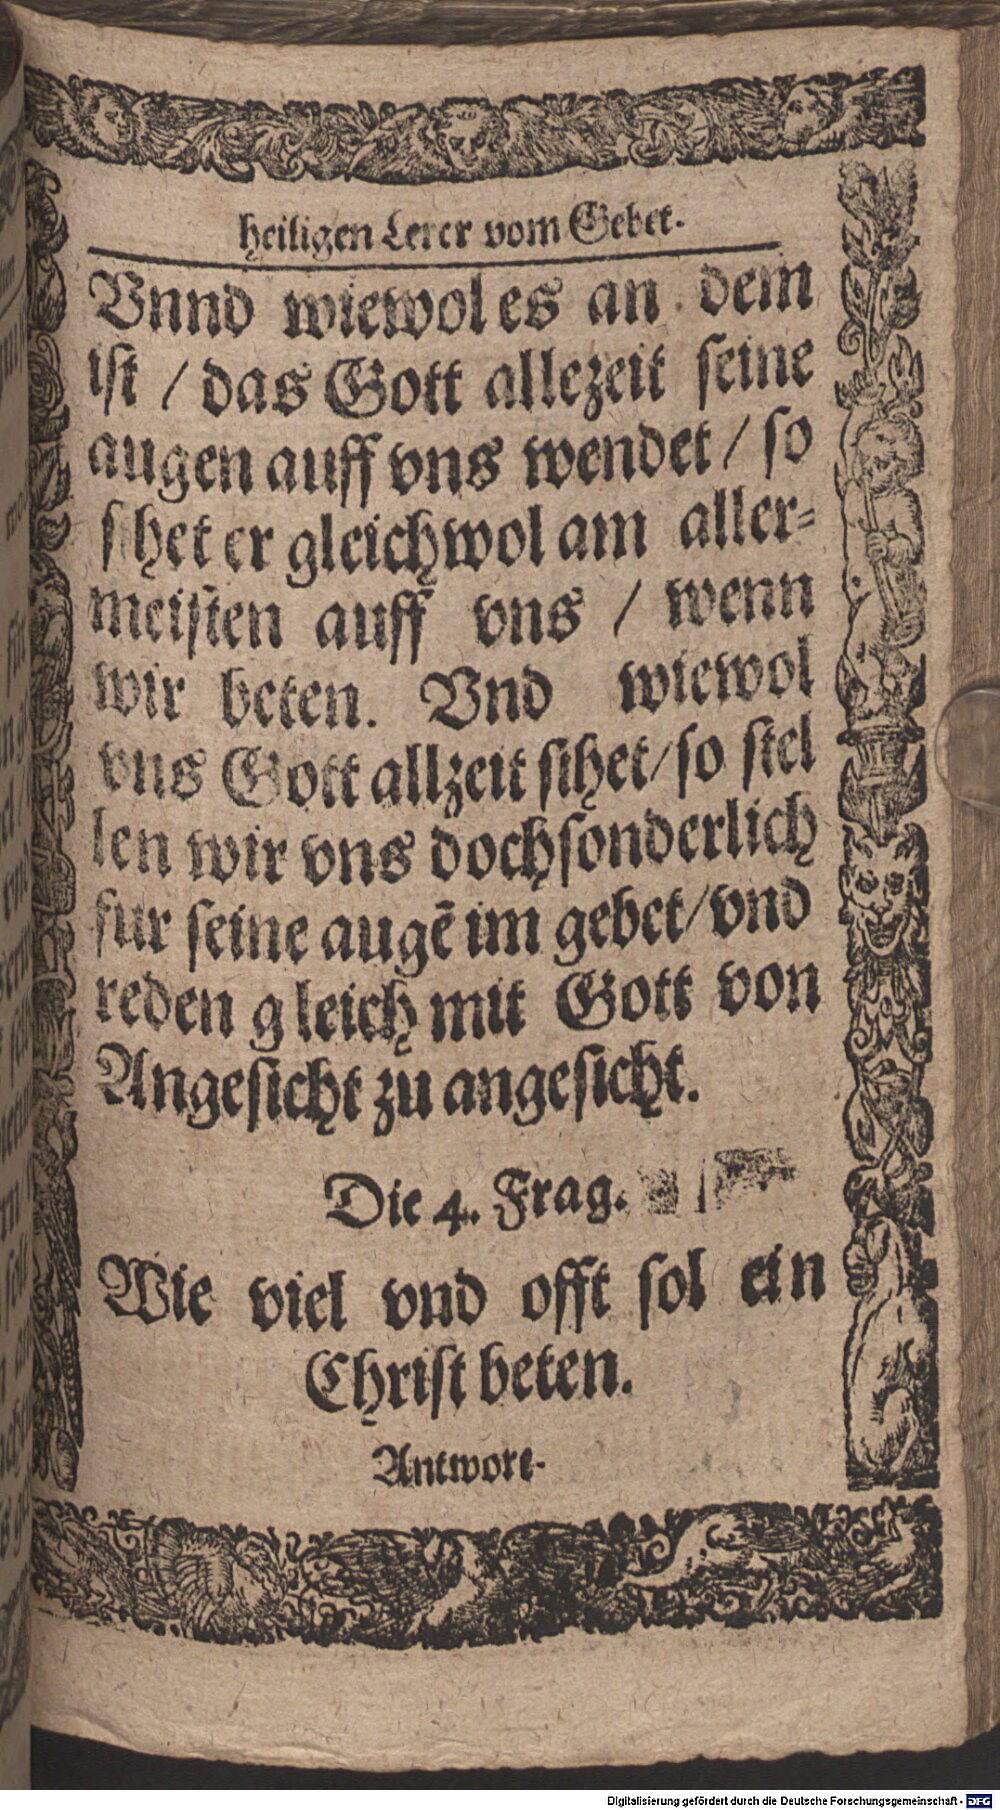 heiligen Lerer vom Gebet.
Vnnd wiewol es an dem
ist / das Gott allezeit seine
augen auff vns wendet / so
sihet er gleichwol am aller=
meisten auff vns / wenn
wir beten. Vnd wiewol
vns Gott allzeit sihet / so stel
len wir vns doch sonderlich
fur seine augē im gebet / vnd
reden gleich mit Gott von
Angesicht zu angesicht.
Die 4. Frag.
Wie viel vnd offt sol ein
Christ beten.
Antwort.
Digitalisierung gefördert durch die Deutsche Forschungsgemeinschaft - DFG